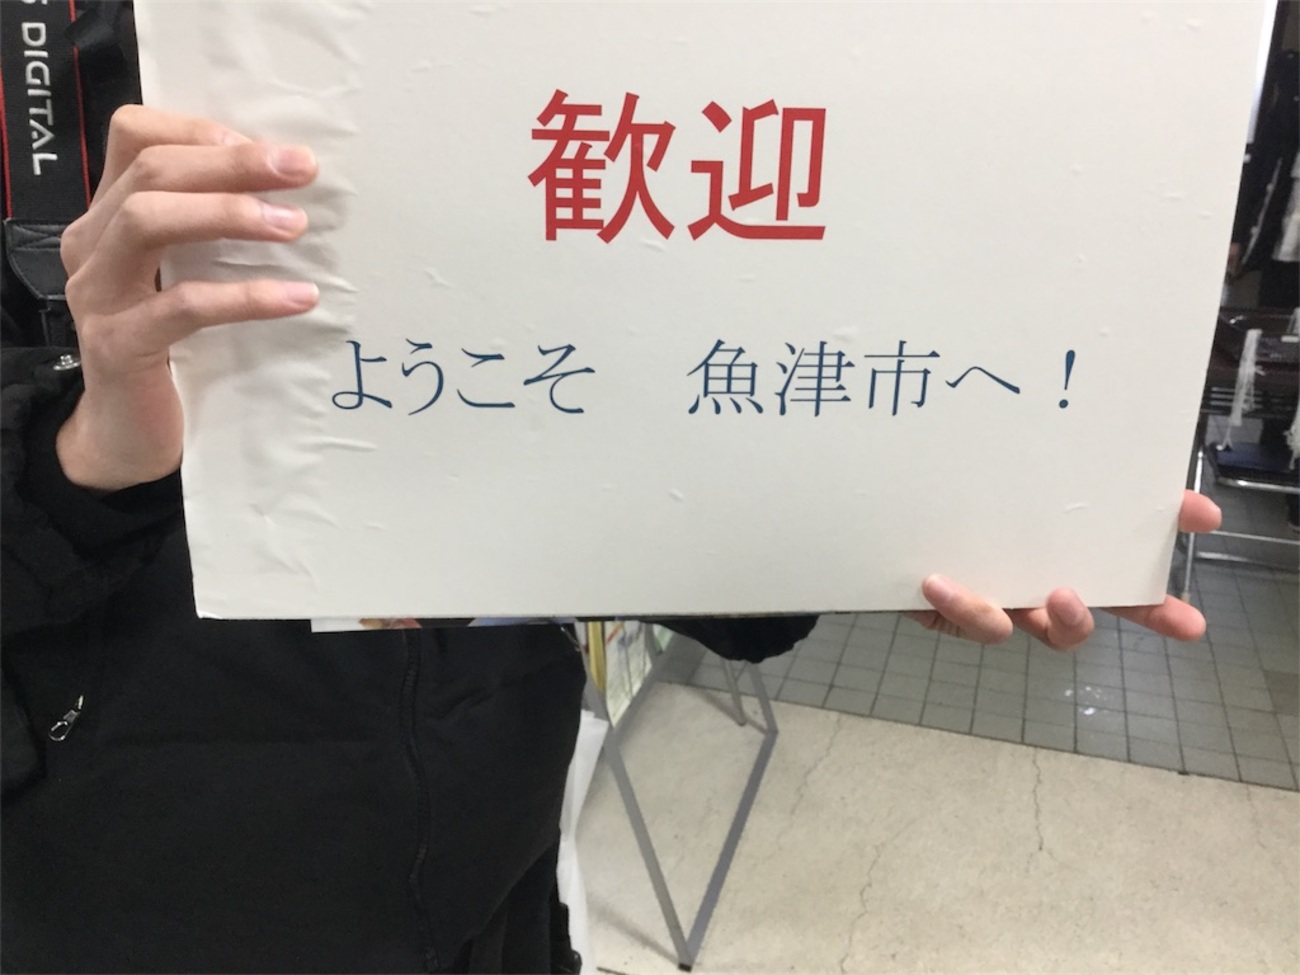 DIGITAL
歓迎
ようこそ　魚津市へ！